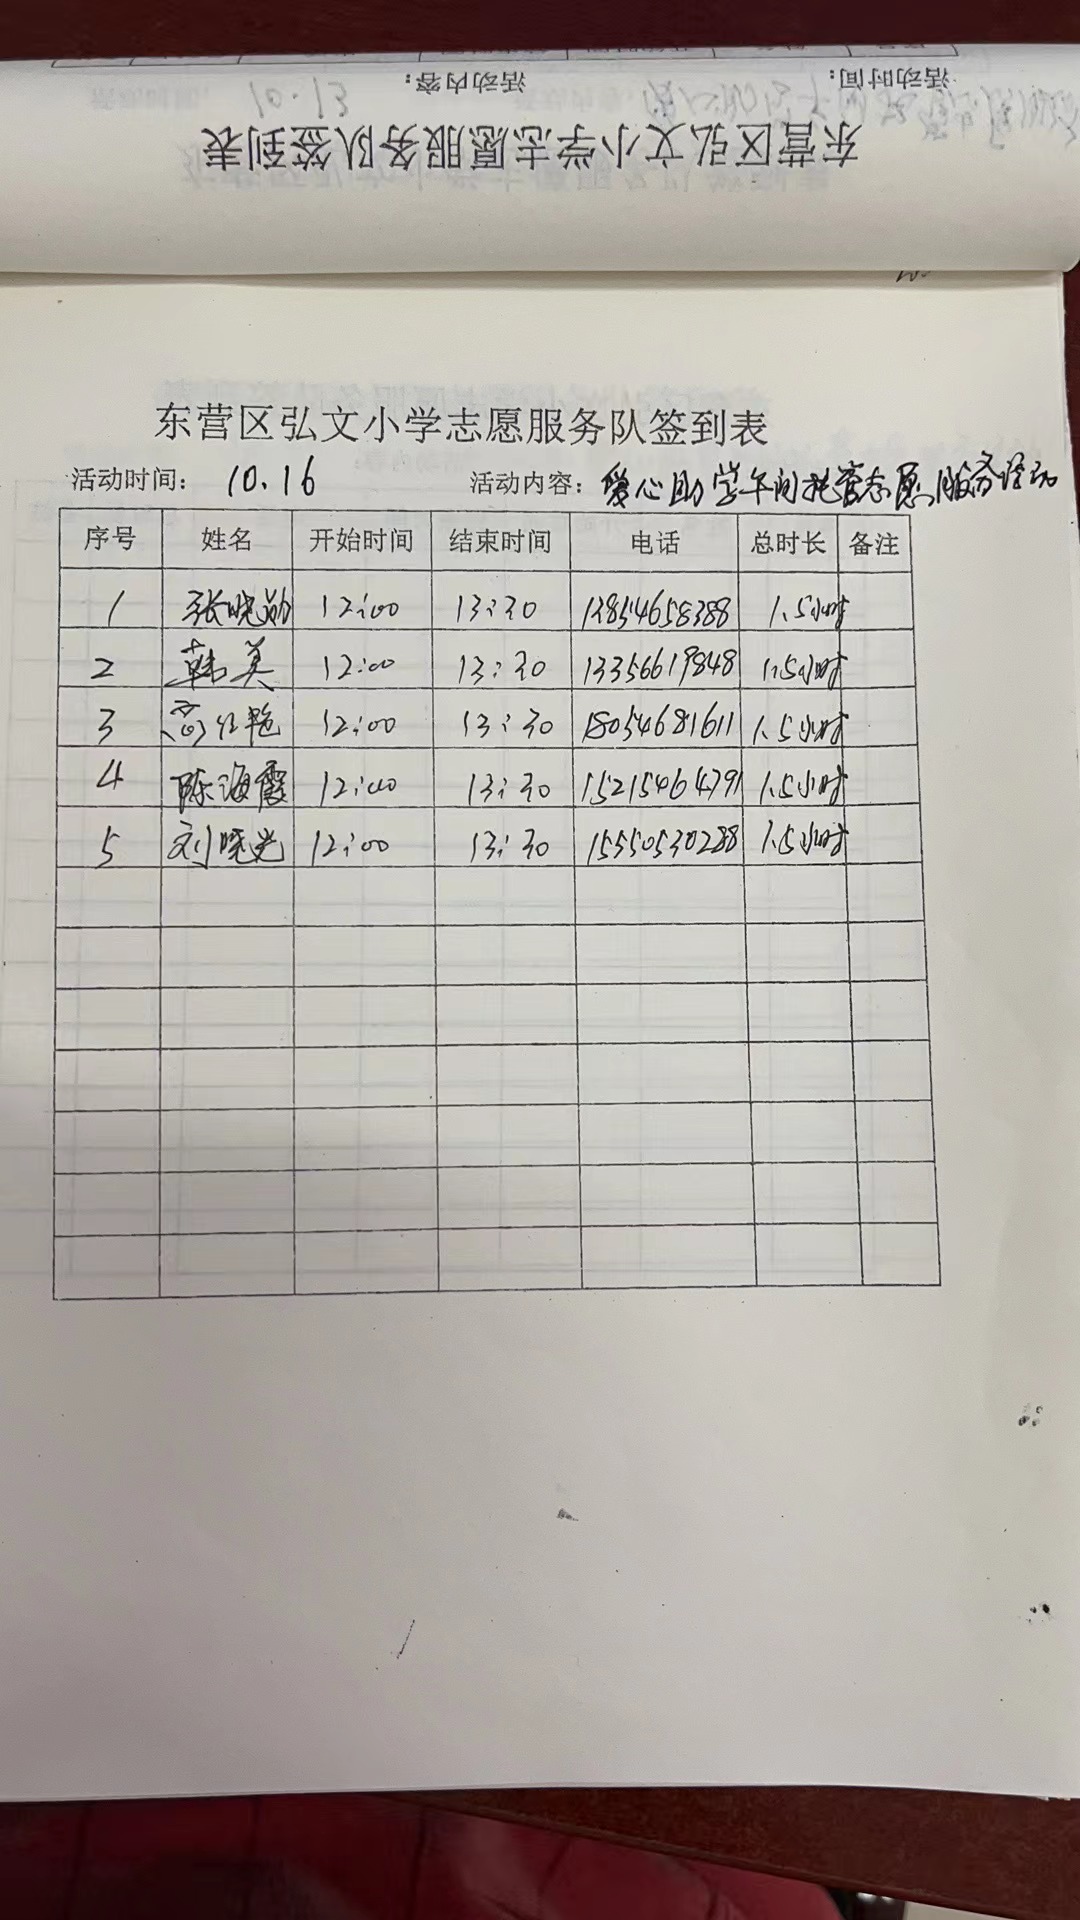 活动时间: 活动内容:
东营区弘文小学志愿服务队签到表
东营区弘文小学志愿服务队签到表
活动时间: 10.16 活动内容: 爱心助学午间托管志愿服务活动
序号 姓名 开始时间 结束时间 电话 总时长 备注
1 张晓勋 12:00 13:30 13854658388 1.5小时
2 韩美 12:00 13:30 13356619848 1.5小时
3 高红艳 12:00 13:30 18054681611 1.5小时
4 陈海霞 12:00 13:30 15215464791 1.5小时
5 刘晓光 12:00 13:30 15550530288 1.5小时